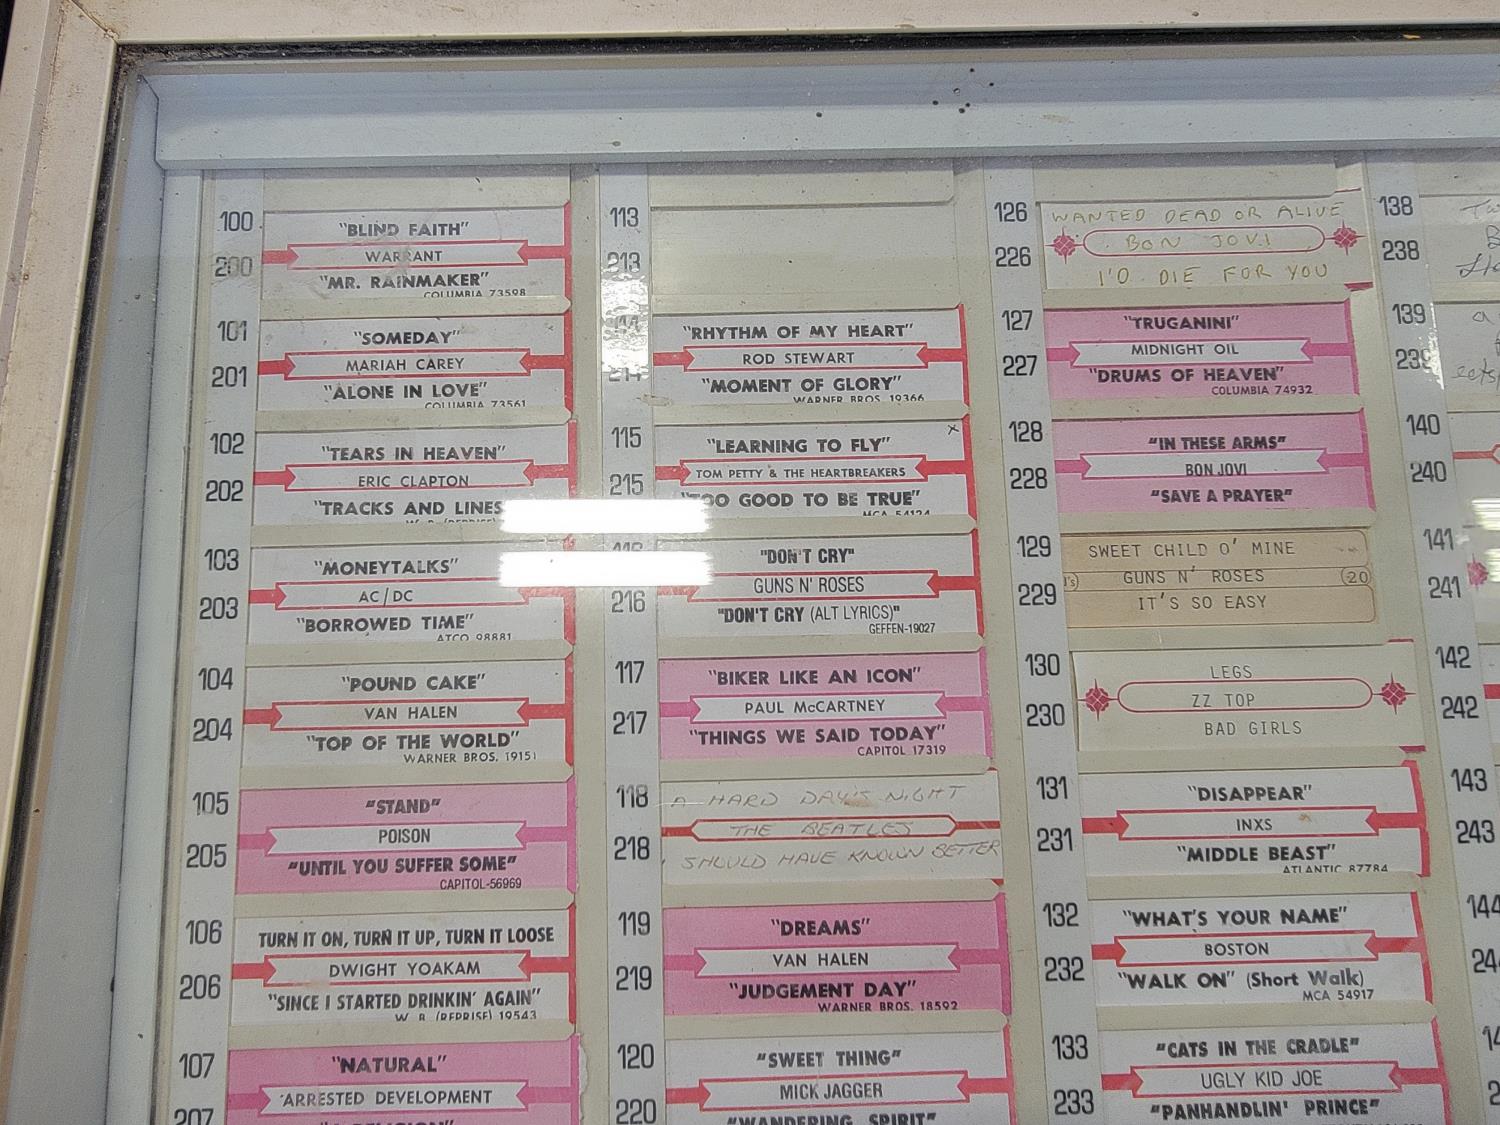 100
"BLIND FAITH"
WARRANT
200
"MR. RAINMAKER"
COLUMBIA 73598
101
"SOMEDAY"
MARIAH CAREY
201
"ALONE IN LOVE"
COLUMBIA 73561
102
"TEARS IN HEAVEN"
ERIC CLAPTON
202
"TRACKS AND LINES
W. B. (REPRISE)
103
"MONEYTALKS"
AC/DC
203
"BORROWED TIME"
ATCO 98881
104
"POUND CAKE"
VAN HALEN
204
"TOP OF THE WORLD"
WARNER BROS. 19151
105
"STAND"
POISON
205
"UNTIL YOU SUFFER SOME"
CAPITOL-56969
106
TURN IT ON, TURN IT UP, TURN IT LOOSE
DWIGHT YOAKAM
206
"SINCE I STARTED DRINKIN' AGAIN"
W. B. (REPRISE) 19543
107
"NATURAL"
ARRESTED DEVELOPMENT
207
113
213
114
"RHYTHM OF MY HEART"
ROD STEWART
214
"MOMENT OF GLORY"
WARNER BROS. 19366
115
"LEARNING TO FLY"
x
TOM PETTY & THE HEARTBREAKERS
215
"TOO GOOD TO BE TRUE"
MCA 54124
116
"DON'T CRY"
GUNS N' ROSES
216
"DON'T CRY (ALT LYRICS)"
GEFFEN-19027
117
"BIKER LIKE AN ICON"
PAUL McCARTNEY
217
"THINGS WE SAID TODAY"
CAPITOL 17319
118
A HARD DAY'S NIGHT
THE BEATLES
218
I SHOULD HAVE KNOWN BETTER
119
"DREAMS"
VAN HALEN
219
"JUDGEMENT DAY"
WARNER BROS. 18592
120
"SWEET THING"
MICK JAGGER
220
"WANDERING SPIRIT"
126
WANTED DEAD OR ALIVE
BON JOVI
226
I'D DIE FOR YOU
127
"TRUGANINI"
MIDNIGHT OIL
227
"DRUMS OF HEAVEN"
COLUMBIA 74932
128
"IN THESE ARMS"
BON JOVI
228
"SAVE A PRAYER"
129
SWEET CHILD O' MINE
GUNS N' ROSES
(20
229
IT'S SO EASY
130
LEGS
ZZ TOP
230
BAD GIRLS
131
"DISAPPEAR"
INXS
231
"MIDDLE BEAST"
ATLANTIC 87784
132
"WHAT'S YOUR NAME"
BOSTON
232
"WALK ON" (Short Walk)
MCA 54917
133
"CATS IN THE CRADLE"
UGLY KID JOE
233
"PANHANDLIN' PRINCE"
138
238
139
239
140
240
141
241
142
242
143
243
144